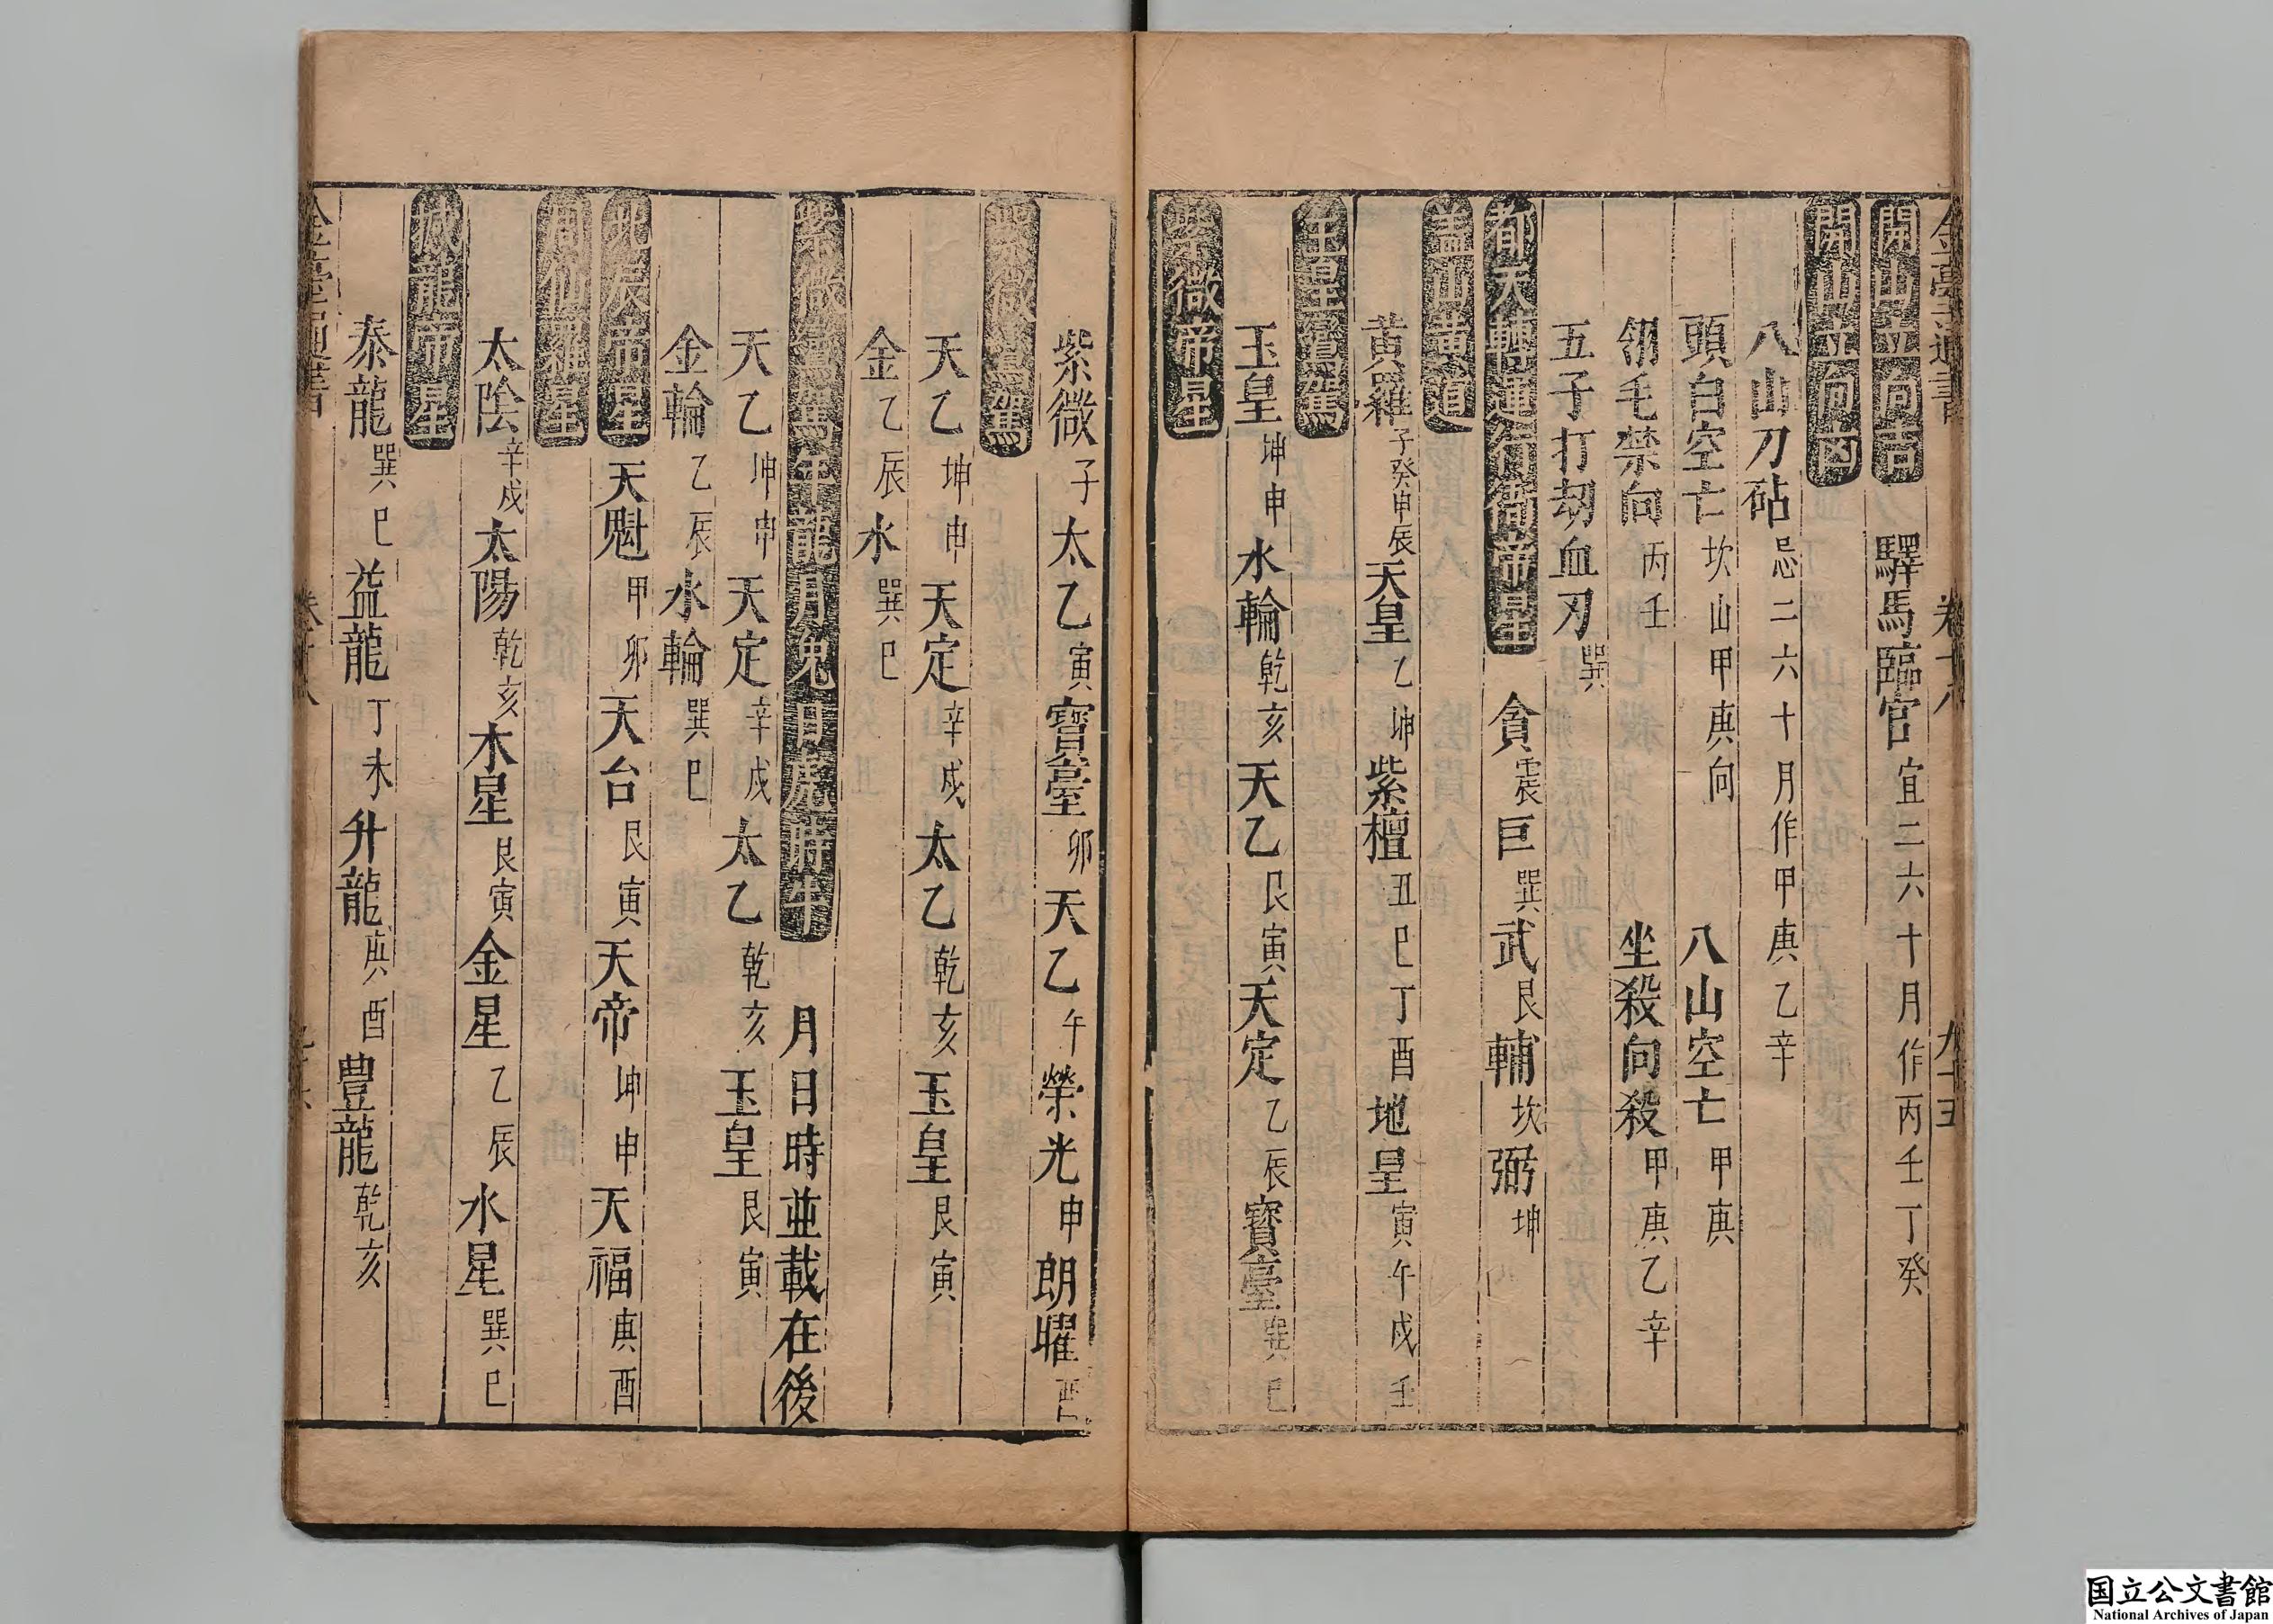 開山立向吉　驛馬臨官 宜二六十月作丙壬丁癸
開山立向凶
八山刀砧 忌二六十月作甲庚乙辛
頭白空亡 坎山甲庚向　八山空亡 甲庚
翎毛禁向 丙壬　坐殺向殺 甲庚乙辛
五子打刼血刃 巽
都天轉運行衙帝星　貪 震 巨 巽 武 艮 輔 坎 弼 坤
蓋山黃道
黃羅 子癸申辰 天皇 乙坤 紫檀 丑巳丁酉 地皇 寅午戌壬
玉皇鑾駕
玉皇 坤申 水輪 乾亥 天乙 艮寅 天定 乙辰 寶臺 巽巳
紫微帝星
紫微 子 太乙 寅 寶臺 卯 天乙 午 榮光 申 朗曜 酉
紫微鑾駕
天乙 坤申 天定 辛戌 太乙 乾亥 玉皇 艮寅
金 乙辰 水 巽巳
紫微鑾駕年龍月兔日虎時牛　月日時並載在後
天乙 坤申 天定 辛戌 太乙 乾亥 玉皇 艮寅
金輪 乙辰 水輪 巽巳
北辰帝星 天魁 甲卯 天台 艮寅 天帝 坤申 天福 庚酉
周仙羅星
太陰 辛戌 太陽 乾亥 木星 艮寅 金星 乙辰 水星 巽巳
撼龍帝星
泰龍 巽巳 益龍 丁未 升龍 庚酉 豊龍 乾亥
国立公文書館
National Archives of Japan